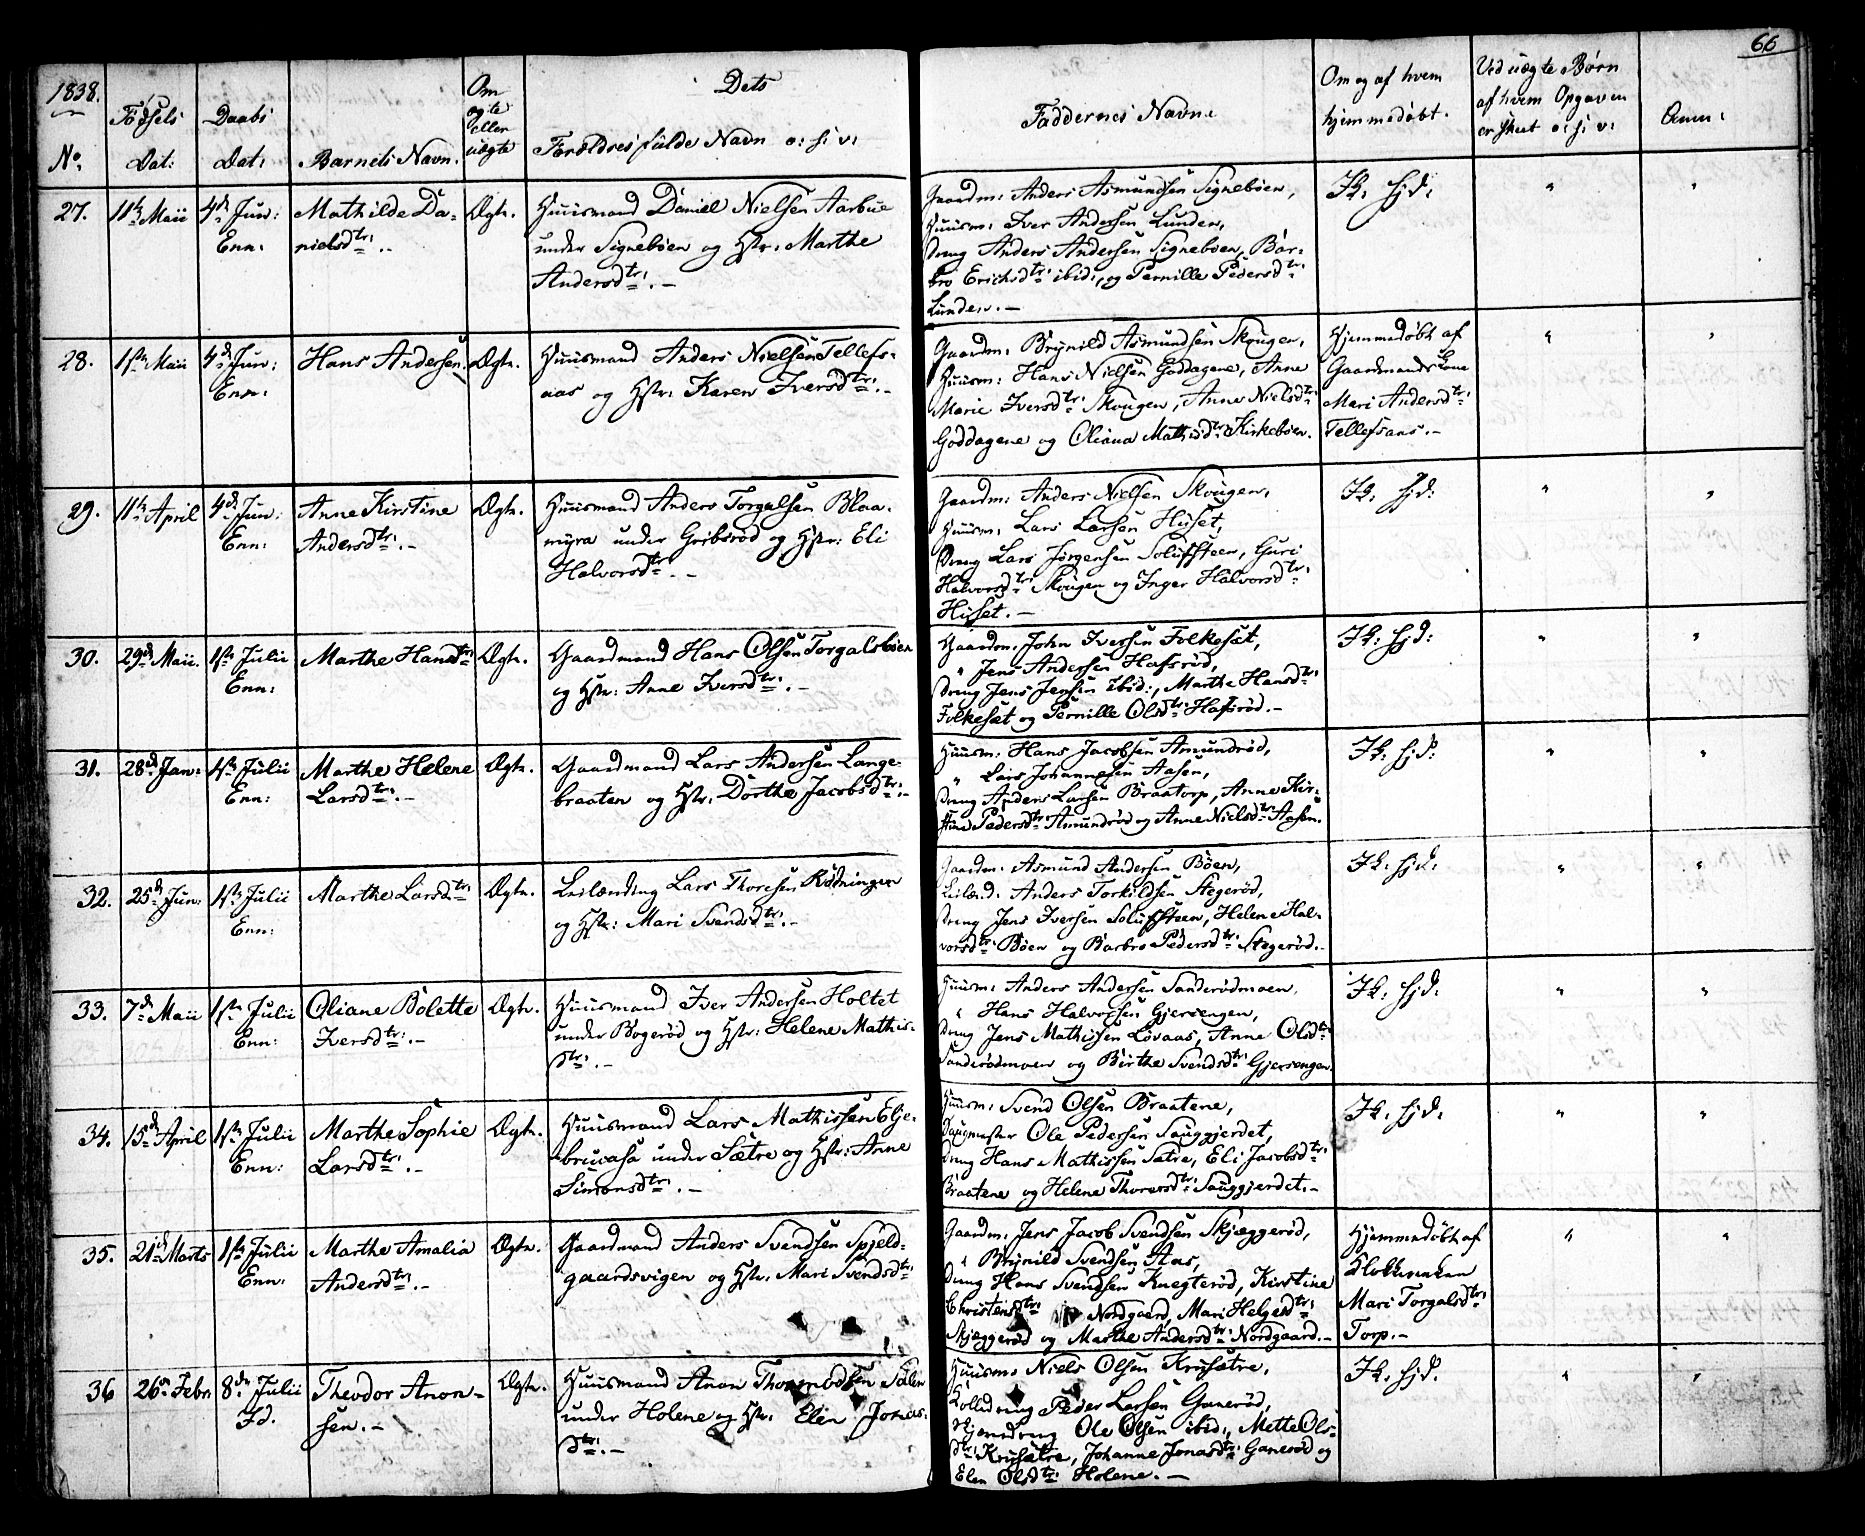 1838.
66
No.
Fødsels
Dat:
Daabs
Dat:
Barnets Navn.
Om
ægte
eller
uægte
Dets
Forældres fulde Navn o: s: v:
Faddernes Navne
Om og af hvem
hjemmedøbt.
Ved uægte Børn
af hvem Opgaven
er skeet o: s: v:
Anm:
27.
11te Maii
4d Jun:
Enn:
Mathilde Da-
nielsdtr:
Ægte.
Huusmand Daniel Nielsen Aarbue
under Signebøen og Hstr: Marthe
Andersdtr:. -
Gaardm: Anders Asmundsen Signebøen,
Huusm: Iver Andersen Lunden,
Dreng Anders Andersen Signebøen, Bar-
bro Erichsdtr: ibid:, og Pernille Pedersdtr:
Lunden. -
Ik: Hjd:
"
"
28.
1ste Maii
4d Jun:
Enn:
Hans Andersen.
Ægte.
Huusmand Anders Nielsen Tellefs-
aas og Hstr: Karen Iversdtr:. -
Gaardm: Brynild Asmundsen Skougen,
Huusm: Hans Nielsen Goddagene, Anne
Marie Iversdtr: Skougen, Anne Nielsdtr:
Goddagene og Oliana Mathisdtr: Kirkebøen.
Hjemmedøbt af
Gaardmands Kone
Mari Andersdtr:
Tellefsaas. -
"
"
29.
11te April
4d Jun:
Enn:
Anne Kirstine
Andersdtr:. -
Ægte.
Huusmand Anders Torgalsen Blaa-
myra under Gribsrød og Hstr: Eli
Halvorsdtr:. -
Gaardm: Anders Nielsen Skougen,
Huusm: Lars Larsen Huset,
Dreng Lars Jørgensen Soluffsteen, Guri
Halvorsdtr: Skougen og Inger Halvorsdtr:
Huset. -
Ik: Hjd:
"
"
30.
29d Maii.
1ste Julii
Enn:
Marthe Hansdtr:
Ægte.
Gaardmand Hans Olsen Torgalsbøen
og Hstr: Anne Iversdtr:. -
Gaardm: John Iversen Folkesæt,
" Jens Andersen Hafsrød,
Dreng Jens Jensen ibid:, Marthe Hansdtr:
Folkesæt og Pernille Olsdtr: Hafsrød. -
Ik: Hjd:
"
"
31.
28d Jan:
1ste Julii
Enn:
Marthe Helene
Larsdtr:. -
Ægte.
Gaardmand Lars Andersen Lange-
braaten og Hstr: Dorthe Jacobsdtr:. -
Huusm: Hans Jacobsen Amundrød,
" Lars Johannesen Aasen,
Dreng Anders Larsen Braatorp, Anne Kir-
stine Pedersdtr: Amundrød og Anne Nielsdtr: Aasen.
Ik: Hjd:
"
"
32.
25d Jun:
1ste Julii
Enn:
Marthe Larsdtr:
Ægte.
Leilænding Lars Thoresen Rødningen
og Hstr: Mari Svendsdtr:. -
Gaardm: Asmund Andersen Bøen,
Leilænd: Anders Torkildsen Stegerød,
Dreng Jens Iversen Soluffsteen, Helene Hal-
vorsdtr: Bøen og Barbro Pedersdtr: Stegerød. -
Ik: Hjd:
"
"
33.
7d Maii
1ste Julii
Enn:
Oliane Bolette
Iversdtr:. -
Ægte.
Huusmand Iver Andersen Holtet
under Bogerød og Hstr: Helene Mathis-
dtr:. -
Huusm: Anders Andersen Sanderødmoen,
" Hans Halvorsen Gjersengen,
Dreng Jens Mathissen Løvaas, Anne Olsdtr:
Sanderødmoen og Birthe Svendsdtr: Gjersengen.
Ik: Hjd:
"
"
34.
15d April
1ste Julii
Enn:
Marthe Sophie
Larsdtr:. -
Ægte.
Huusmand Lars Mathissen Elje-
bruasa under Sætre og Hstr: Anne
Simonsdtr:. -
Huusm: Svend Olsen Braatene,
Saugmester Ole Pedersen Sauggjerdet,
Dreng Hans Mathissen Sætre, Eli Jacobsdtr:
Braatene og Helene Thoresdtr: Sauggjerdet. -
Ik: Hjd:
"
"
35.
21d Marts
1ste Julii
Enn:
Marthe Amalia
Andersdtr:. -
Ægte.
Gaardmand Anders Svendsen Spjeld-
gaardsvigen og Hstr: Mari Svendsdtr:
Gaardm: Jens Jacob Svendsen Skjæggerød,
" Brynild Svendsen Aas,
Dreng Hans Svendsen Knegterød, Kirstine
Christensdtr: Nordgaard, Mari Helgesdtr:
Skjæggerød og Marthe Andersdtr: Nordgaard. -
Hjemmedøbt af
Klokkeren
Mari Torgalsdtr:
Torp. -
"
"
36
26d Febr:
8de Julii
Id.
Theodor Anon-
sen. -
Ægte.
Huusmand Anon Thormodsen Sølen
under Holene og Hstr: Elen Jonas-
dtr:. -
Huusm: Niels Olsen Krysætre,
Peder Larsen Ganerød,
Ole Olsen ibid:, Mette Ols-
dtr: Krysætre, Johanne Jonasdtr: Ganerød og
Elen Olsdtr: Holene. -
Ik: Hjd:
"
"